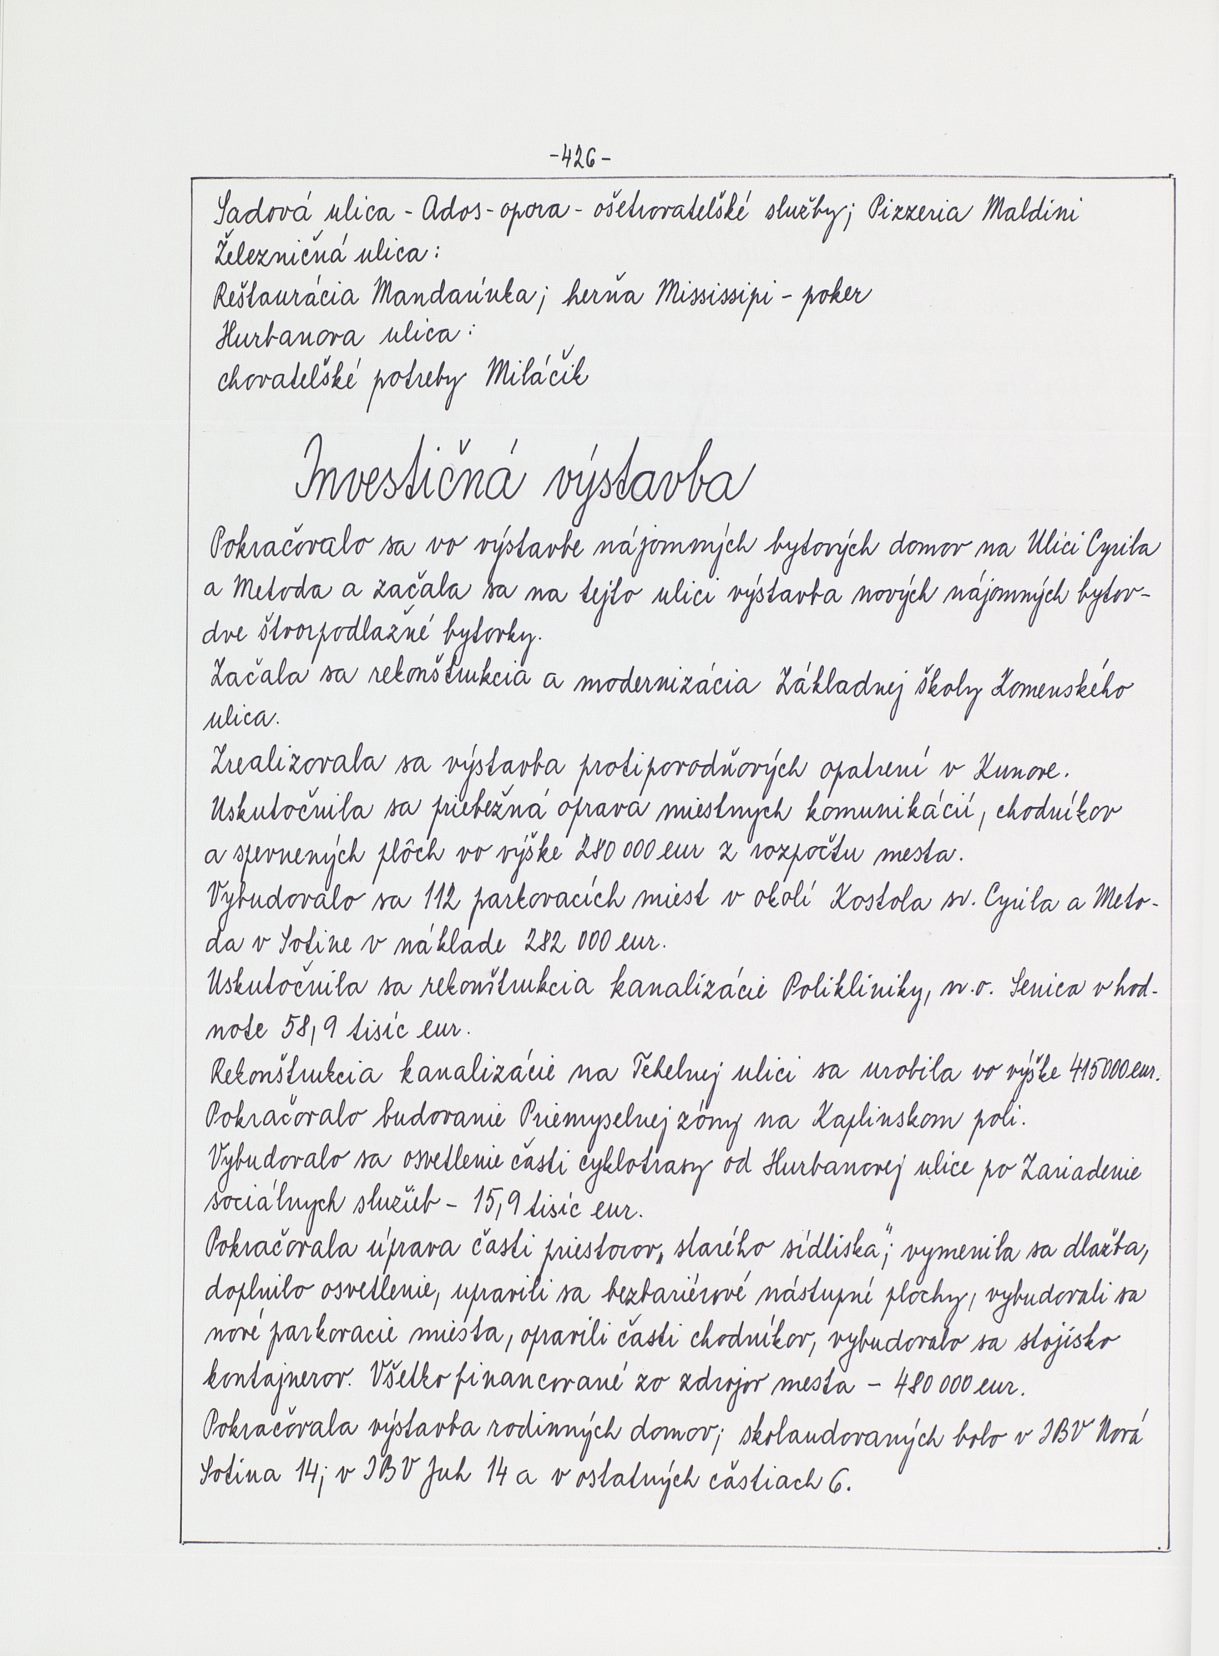 -426-
Sadová ulica - Ados-opora - ošetrovateľské služby; Pizzeria Maldini
Železničná ulica:
Reštaurácia Mandarínka; herňa Mississipi - poker
Hurbanova ulica:
chovateľské potreby Miláčik
Investičná výstavba
Pokračovalo sa vo výstavbe nájomných bytových domov na Ulici Cyrila
a Metoda a začala sa na tejto ulici výstavba nových nájomných bytov -
dve štvorpodlažné bytovky.
Začala sa rekonštrukcia a modernizácia Základnej školy Komenského
ulica.
Zrealizovala sa výstavba protipovodňových opatrení v Kunove.
Uskutočnila sa priebežná oprava miestnych komunikácií, chodníkov
a spevnených plôch vo výške 280 000 eur z rozpočtu mesta.
Vybudovalo sa 112 parkovacích miest v okolí Kostola sv. Cyrila a Meto-
da v Sotine v náklade 282 000 eur.
Uskutočnila sa rekonštrukcia kanalizácie Polikliniky, n.o. Senica v hod-
note 58,9 tisíc eur.
Rekonštrukcia kanalizácie na Tehelnej ulici sa urobila vo výške 415000 eur.
Pokračovalo budovanie Priemyselnej zóny na Kaplinskom poli.
Vybudovalo sa osvetlenie časti cyklotrasy od Hurbanovej ulice po Zariadenie
sociálnych služieb - 15,9 tisíc eur.
Pokračovala úprava časti priestorov „starého sídliska"; vymenila sa dlažba,
doplnilo osvetlenie, upravili sa bezbariérové nástupné plochy, vybudovali sa
nové parkovacie miesta, opravili časti chodníkov, vybudovalo sa stojisko
kontajnerov. Všetko financované zo zdrojov mesta - 480 000 eur.
Pokračovala výstavba rodinných domov; skolaudovaných bolo v IBV Nová
Sotina 14; v IBV Juh 14 a v ostatných častiach 6.